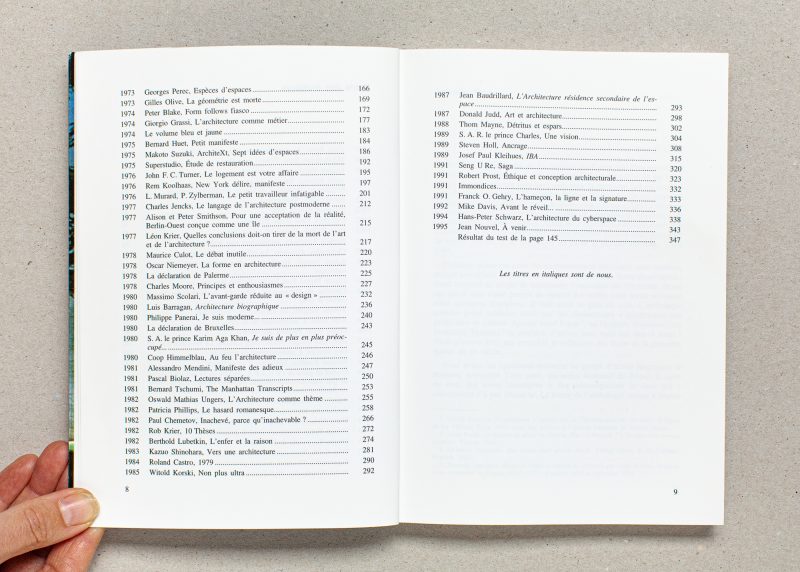 1973 Georges Perec, Espèces d'espaces 166
1973 Gilles Olive, La géométrie est morte 169
1974 Peter Blake, Form follows fiasco 172
1974 Giorgio Grassi, L'architecture comme métier 177
1974 Le volume bleu et jaune 183
1975 Bernard Huet, Petit manifeste 184
1975 Makoto Suzuki, ArchiteXt, Sept idées d'espaces 186
1975 Superstudio, Étude de restauration 192
1976 John F. C. Turner, Le logement est votre affaire 195
1976 Rem Koolhaas, New York délire, manifeste 197
1976 L. Murard, P. Zylberman, Le petit travailleur infatigable 201
1977 Charles Jencks, Le langage de l'architecture postmoderne 212
1977 Alison et Peter Smithson, Pour une acceptation de la réalité,
Berlin-Ouest conçue comme une île 215
1977 Léon Krier, Quelles conclusions doit-on tirer de la mort de l'art
et de l'architecture ? 217
1978 Maurice Culot, Le débat inutile 220
1978 Oscar Niemeyer, La forme en architecture 223
1978 La déclaration de Palerme 225
1978 Charles Moore, Principes et enthousiasmes 227
1980 Massimo Scolari, L'avant-garde réduite au « design » 232
1980 Luis Barragan, Architecture biographique 236
1980 Philippe Panerai, Je suis moderne... 240
1980 La déclaration de Bruxelles 243
1980 S. A. le prince Karim Aga Khan, Je suis de plus en plus préoc-
cupé... 245
1980 Coop Himmelblau, Au feu l'architecture 246
1981 Alessandro Mendini, Manifeste des adieux 247
1981 Pascal Biolaz, Lectures séparées 250
1981 Bernard Tschumi, The Manhattan Transcripts 253
1982 Oswald Mathias Ungers, L'Architecture comme thème 255
1982 Patricia Phillips, Le hasard romanesque 258
1982 Paul Chemetov, Inachevé, parce qu'inachevable ? 266
1982 Rob Krier, 10 Thèses 272
1982 Berthold Lubetkin, L'enfer et la raison 274
1983 Kazuo Shinohara, Vers une architecture 281
1984 Roland Castro, 1979 290
1985 Witold Korski, Non plus ultra 292
8
1987 Jean Baudrillard, L'Architecture résidence secondaire de l'es-
pace 293
1987 Donald Judd, Art et architecture 298
1988 Thom Mayne, Détritus et espars 302
1989 S. A. R. le prince Charles, Une vision 304
1989 Steven Holl, Ancrage 308
1989 Josef Paul Kleihues, IBA 315
1991 Seng U Re, Saga 320
1991 Robert Prost, Éthique et conception architecturale 323
1991 Immondices 332
1991 Franck O. Gehry, L'hameçon, la ligne et la signature 333
1992 Mike Davis, Avant le réveil... 336
1994 Hans-Peter Schwarz, L'architecture du cyberspace 338
1995 Jean Nouvel, À venir 343
Résultat du test de la page 145 347
Les titres en italiques sont de nous.
9